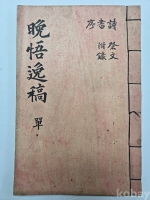 晩悟逸稿
單
詩
書
序
祭文
附錄
kobay